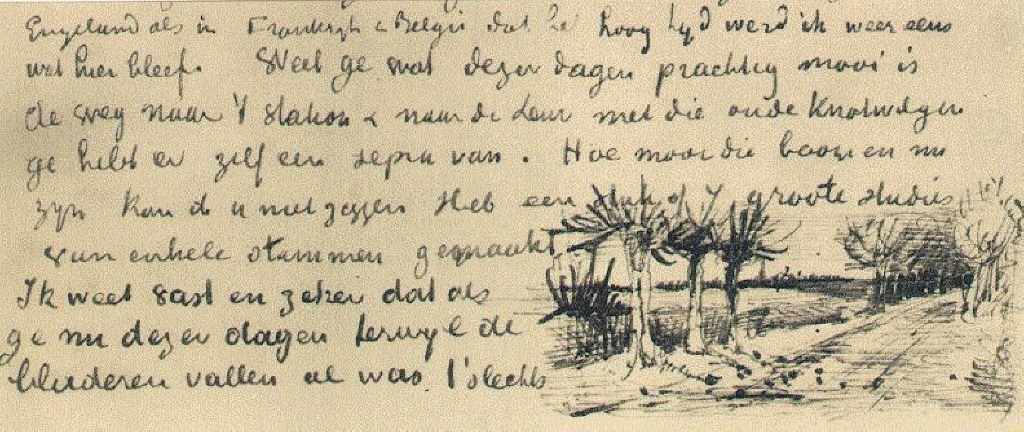 Engeland als in Frankryk & Belgie dat het hoog tyd werd ik weer eens
wat hier bleef. Weet ge wat dezer dagen prachtig mooi is
de weg naar 't station & naar de Leur met die oude Knotwilgen
ge hebt er zelf een sepia van. Hoe mooi die boomen nu
zyn kan ik u niet zeggen Heb een stuk of 7 groote studies
van enkele stammen gemaakt
Ik weet vast en zeker dat als
ge nu dezer dagen terwyl de
bladeren vallen al was 't slechts